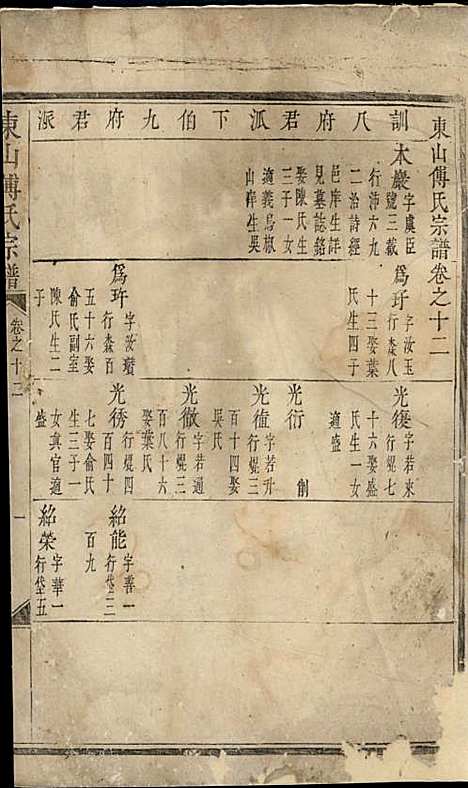 東山傅氏宗譜卷之十二
訓八府君派下伯九府君派
木巖
字虞臣
號三載
行沛六九
二治詩經
邑庠生詳
見墓誌銘
娶陳氏生
三子一女
適義烏椒
山庠生吳
為玗
字汝玉
行森八
十三娶葉
氏生四子
為玝
字汝瓚
行森百
五十六娶
俞氏副室
陳氏生二
子
光復
字若來
行焜七
十六娶盛
氏生一女
適盛
光衍
創
光值
字若升
行焜三
百十四娶
吳氏
光徹
字若通
行焜三
百八十六
娶葉氏
光琇
字
行焜四
百四十
七娶俞氏
生三子一
女真官適
盛
紹能
字善一
行岱三
百九
紹榮
字華一
行岱五
東山傅氏宗譜
卷之十二
一